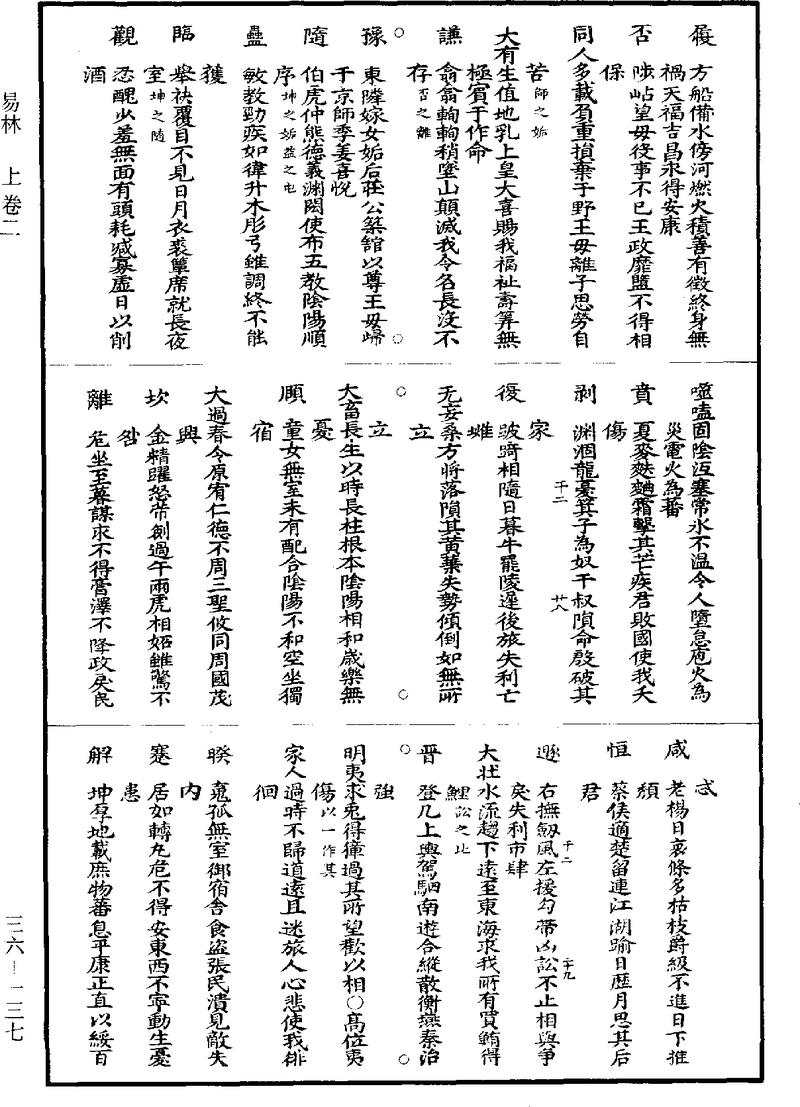 易林　上卷二
履　方船備水傍河燃火積善有徵終身無
禍天福吉昌永得安康
否　陟岵望母役事不已王政靡盬不得相
保
同人多載負重損棄于野王母離子思勞自
苦師之姤
大有生值地乳上皇大喜賜我福祉壽筭無
極賓于作命
謙　翕翕軥軥稍墜山顛滅我令名長沒不
存否之離
○豫　東隣嫁女姤后莊公築舘以尊王母歸○
于京師季姜喜悅
隨　伯虎仲熊德義淵閎使布五教陰陽順
序坤之姤益之屯
蠱　敏教勁疾如徫升木彤弓雖調終不能
獲
臨　舉袂覆目不見日月衣裘簟席就長夜
室坤之隨
觀　忍醜少羞無面有頭耗減寡虛日以削
酒
噬嗑固陰沍塞常氷不温令人墮怠庖火為
災電火為蕃
賁　夏麥麩䴬霜擊其芒疾君敗國使我夭
傷
剥　淵涸龍憂箕子為奴干叔隕命殷破其
家
復　跛踦相隨日暮牛罷陵遲後旅失利亡
雌
无妄桑方將落隕其黄葉失勢傾倒如無所
立
○大畜長生以時長柱根本陰陽相和歲樂無○
憂
頤　童女無室未有配合陰陽不和空坐獨
宿
大過春令原宥仁德不周三聖攸同周國茂
興
坎　金精躍怒帶劍過午兩虎相姤雖驚不
咎
離　危坐至暮謀求不得膏澤不降政戾民
忒
咸　老楊日衰條多枯枝爵級不進日下推
頹
恒　蔡侯適楚留連江湖踰日歷月思其后
君
遯　右撫劒風左援勾帶凶訟不止相與爭
戾失利市肆
大壯水流趨下遠至東海求我所有買鮪得
鯉訟之比
○晉　登几上輿駕駟南遊合縱散衡燕秦治○
強
明夷求兎得獐過其所望歡以相○高位夷
傷以一作其
家人過時不歸道遠且迷旅人心悲使我徘
徊
睽　寬孤無室御宿舍食盜張民潰見敵失
内
蹇　居如轉丸危不得安東西不寧動生憂
患
解　坤厚地載庶物蕃息平康正直以綏百
三六—一三七